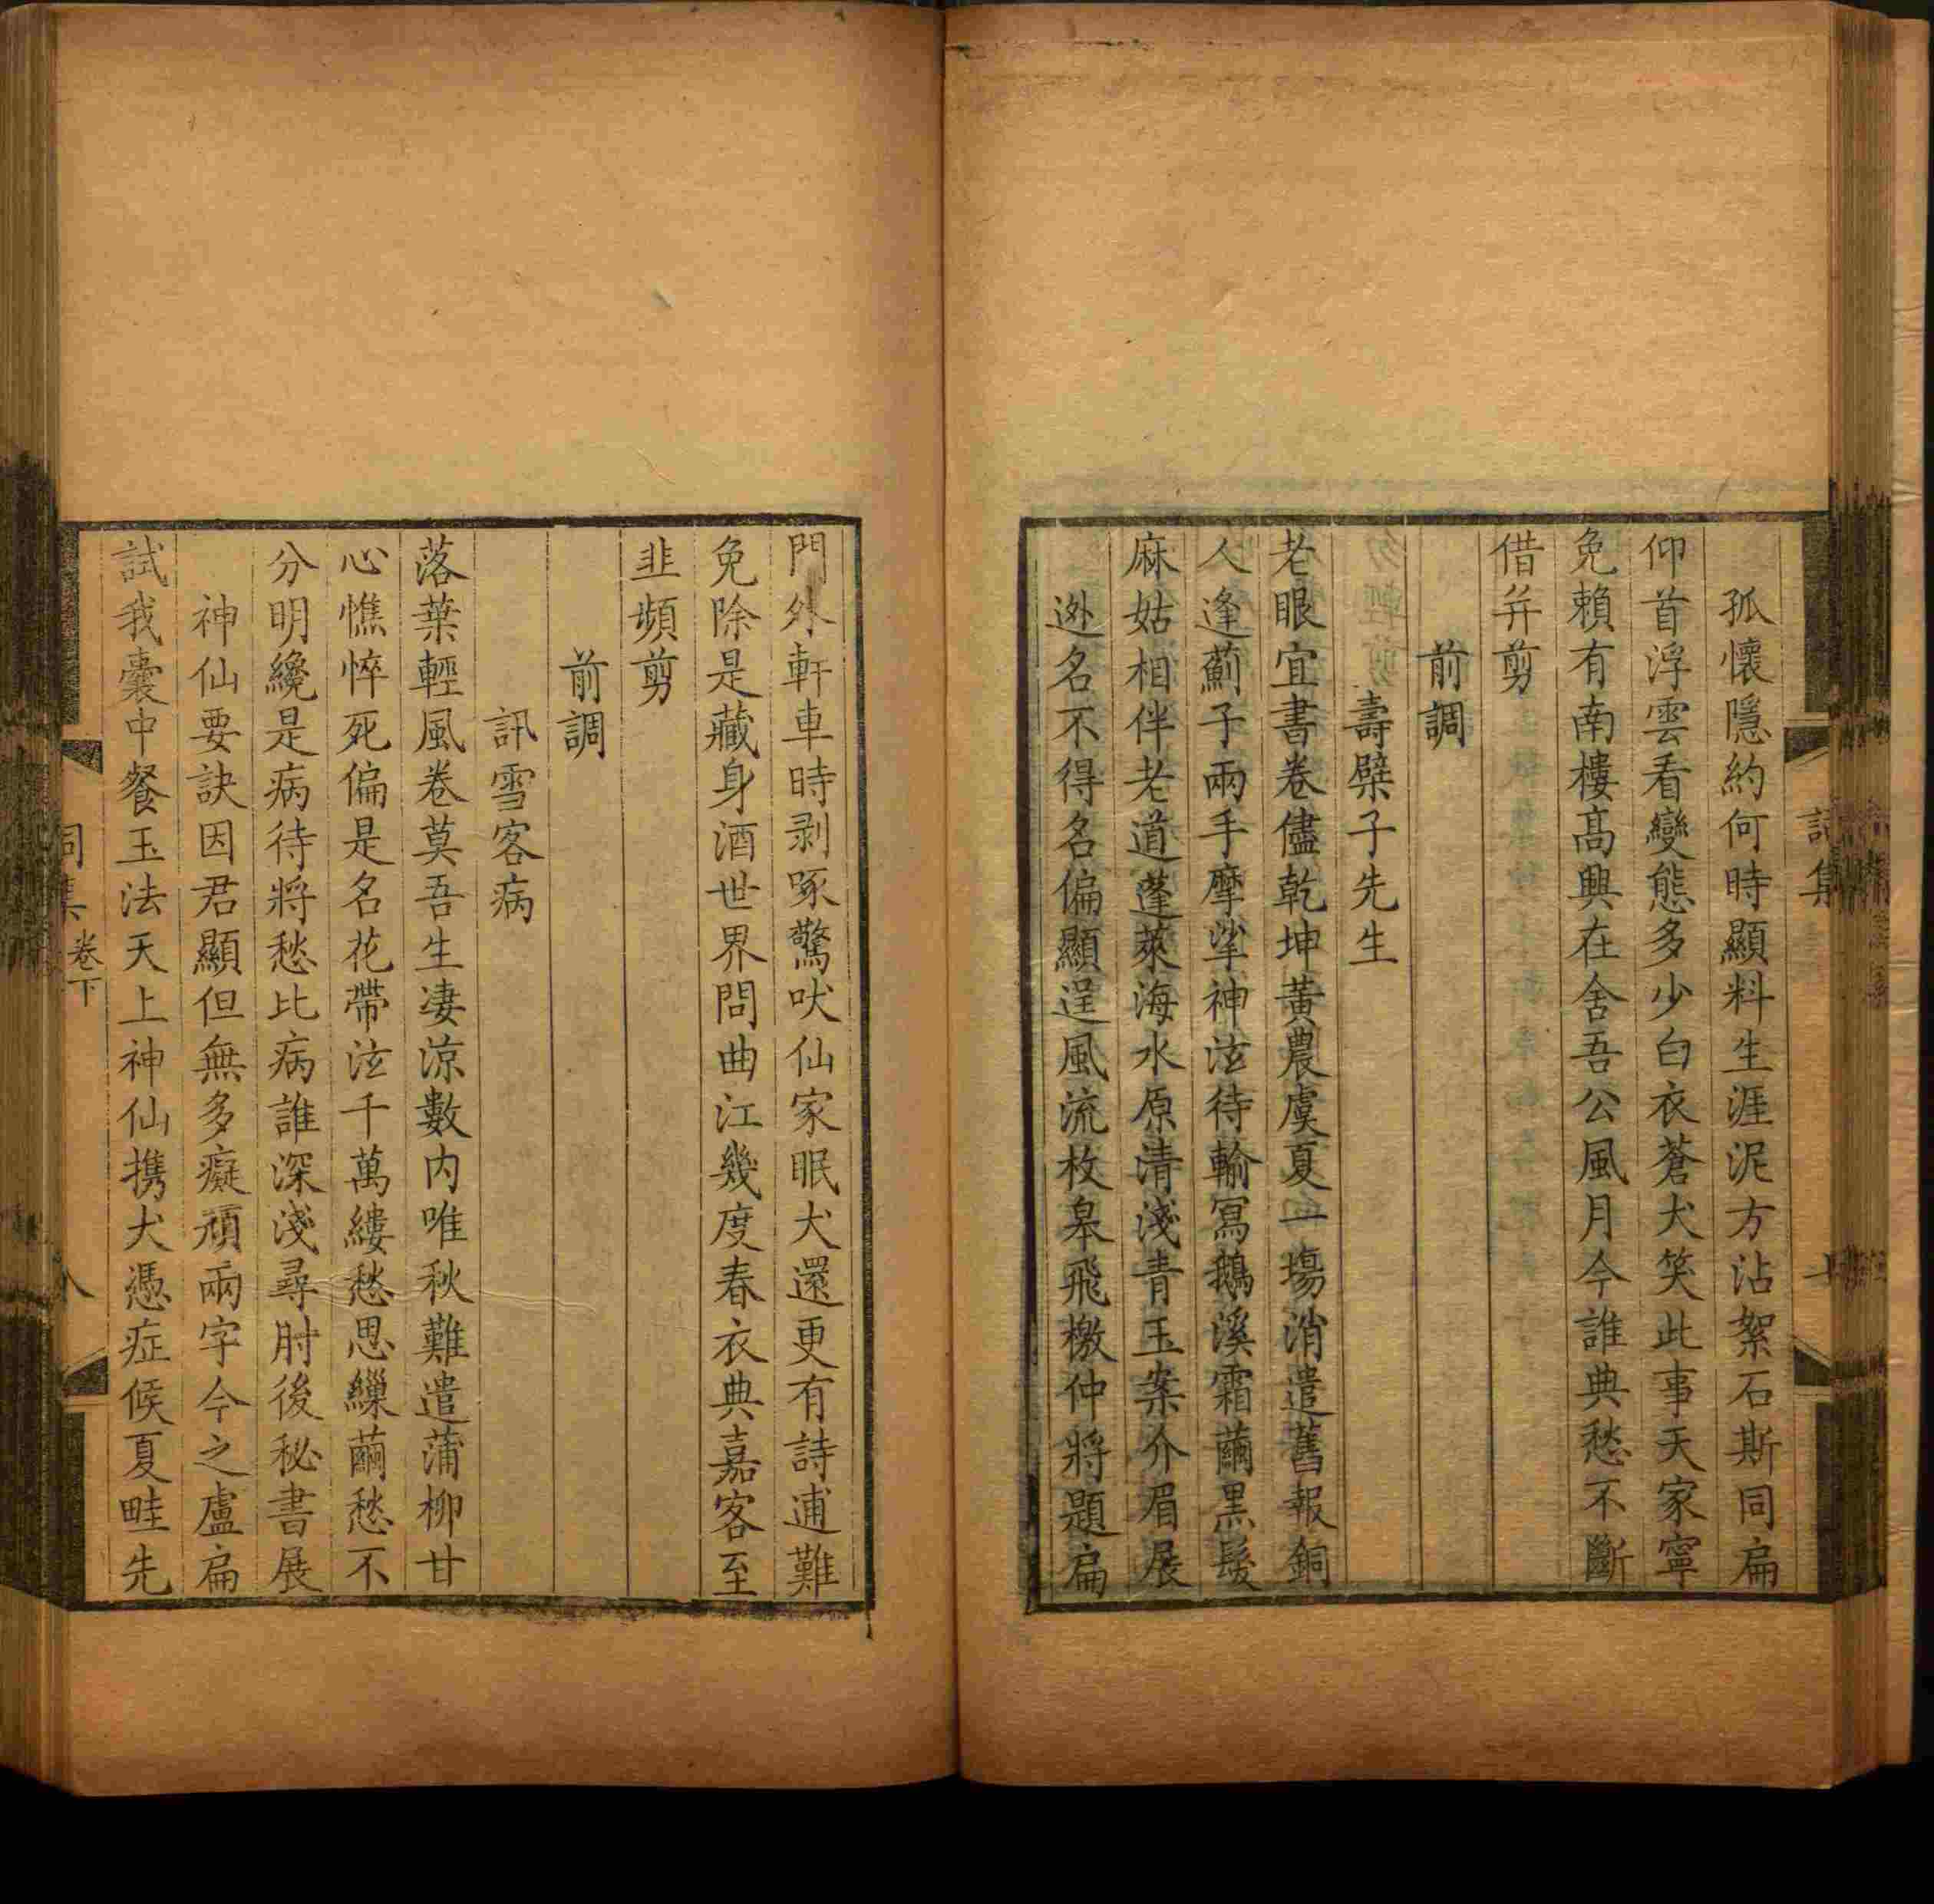 孤懷隱約何時顯料生涯泥方沾絮石斯同扁
仰首浮雲看變態多少白衣蒼犬笑此事天家寧
免賴有南樓高興在舍吾公風月今誰典愁不斷
借并剪
前調
壽檗子先生
老眼宜書卷儘乾坤黃農虞夏一場消遣舊報銅
人逢薊子兩手摩挲神泫待輸寫鵝溪霜繭黑髮
麻姑相伴老道蓬萊海水原清淺青玉案介眉展
逊名不得名偏顯逞風流枚皋飛檄仲將題扁
門外軒車時剥啄驚吠仙家眠犬還更有詩逋難
免除是藏身酒世界問曲江幾度春衣典嘉客至
韭頻剪
前調
訊雪客病
落葉輕風卷莫吾生淒涼數内唯秋難遣蒲柳甘
心憔悴死偏是名花帶泫千萬縷愁思繅繭愁不
分明纔是病待將愁比病誰深淺尋肘後秘書展
神仙要訣因君顯但無多癡頑兩字今之盧扁
試我囊中餐玉法天上神仙携犬憑症候夏畦先
詞集 卷下
八